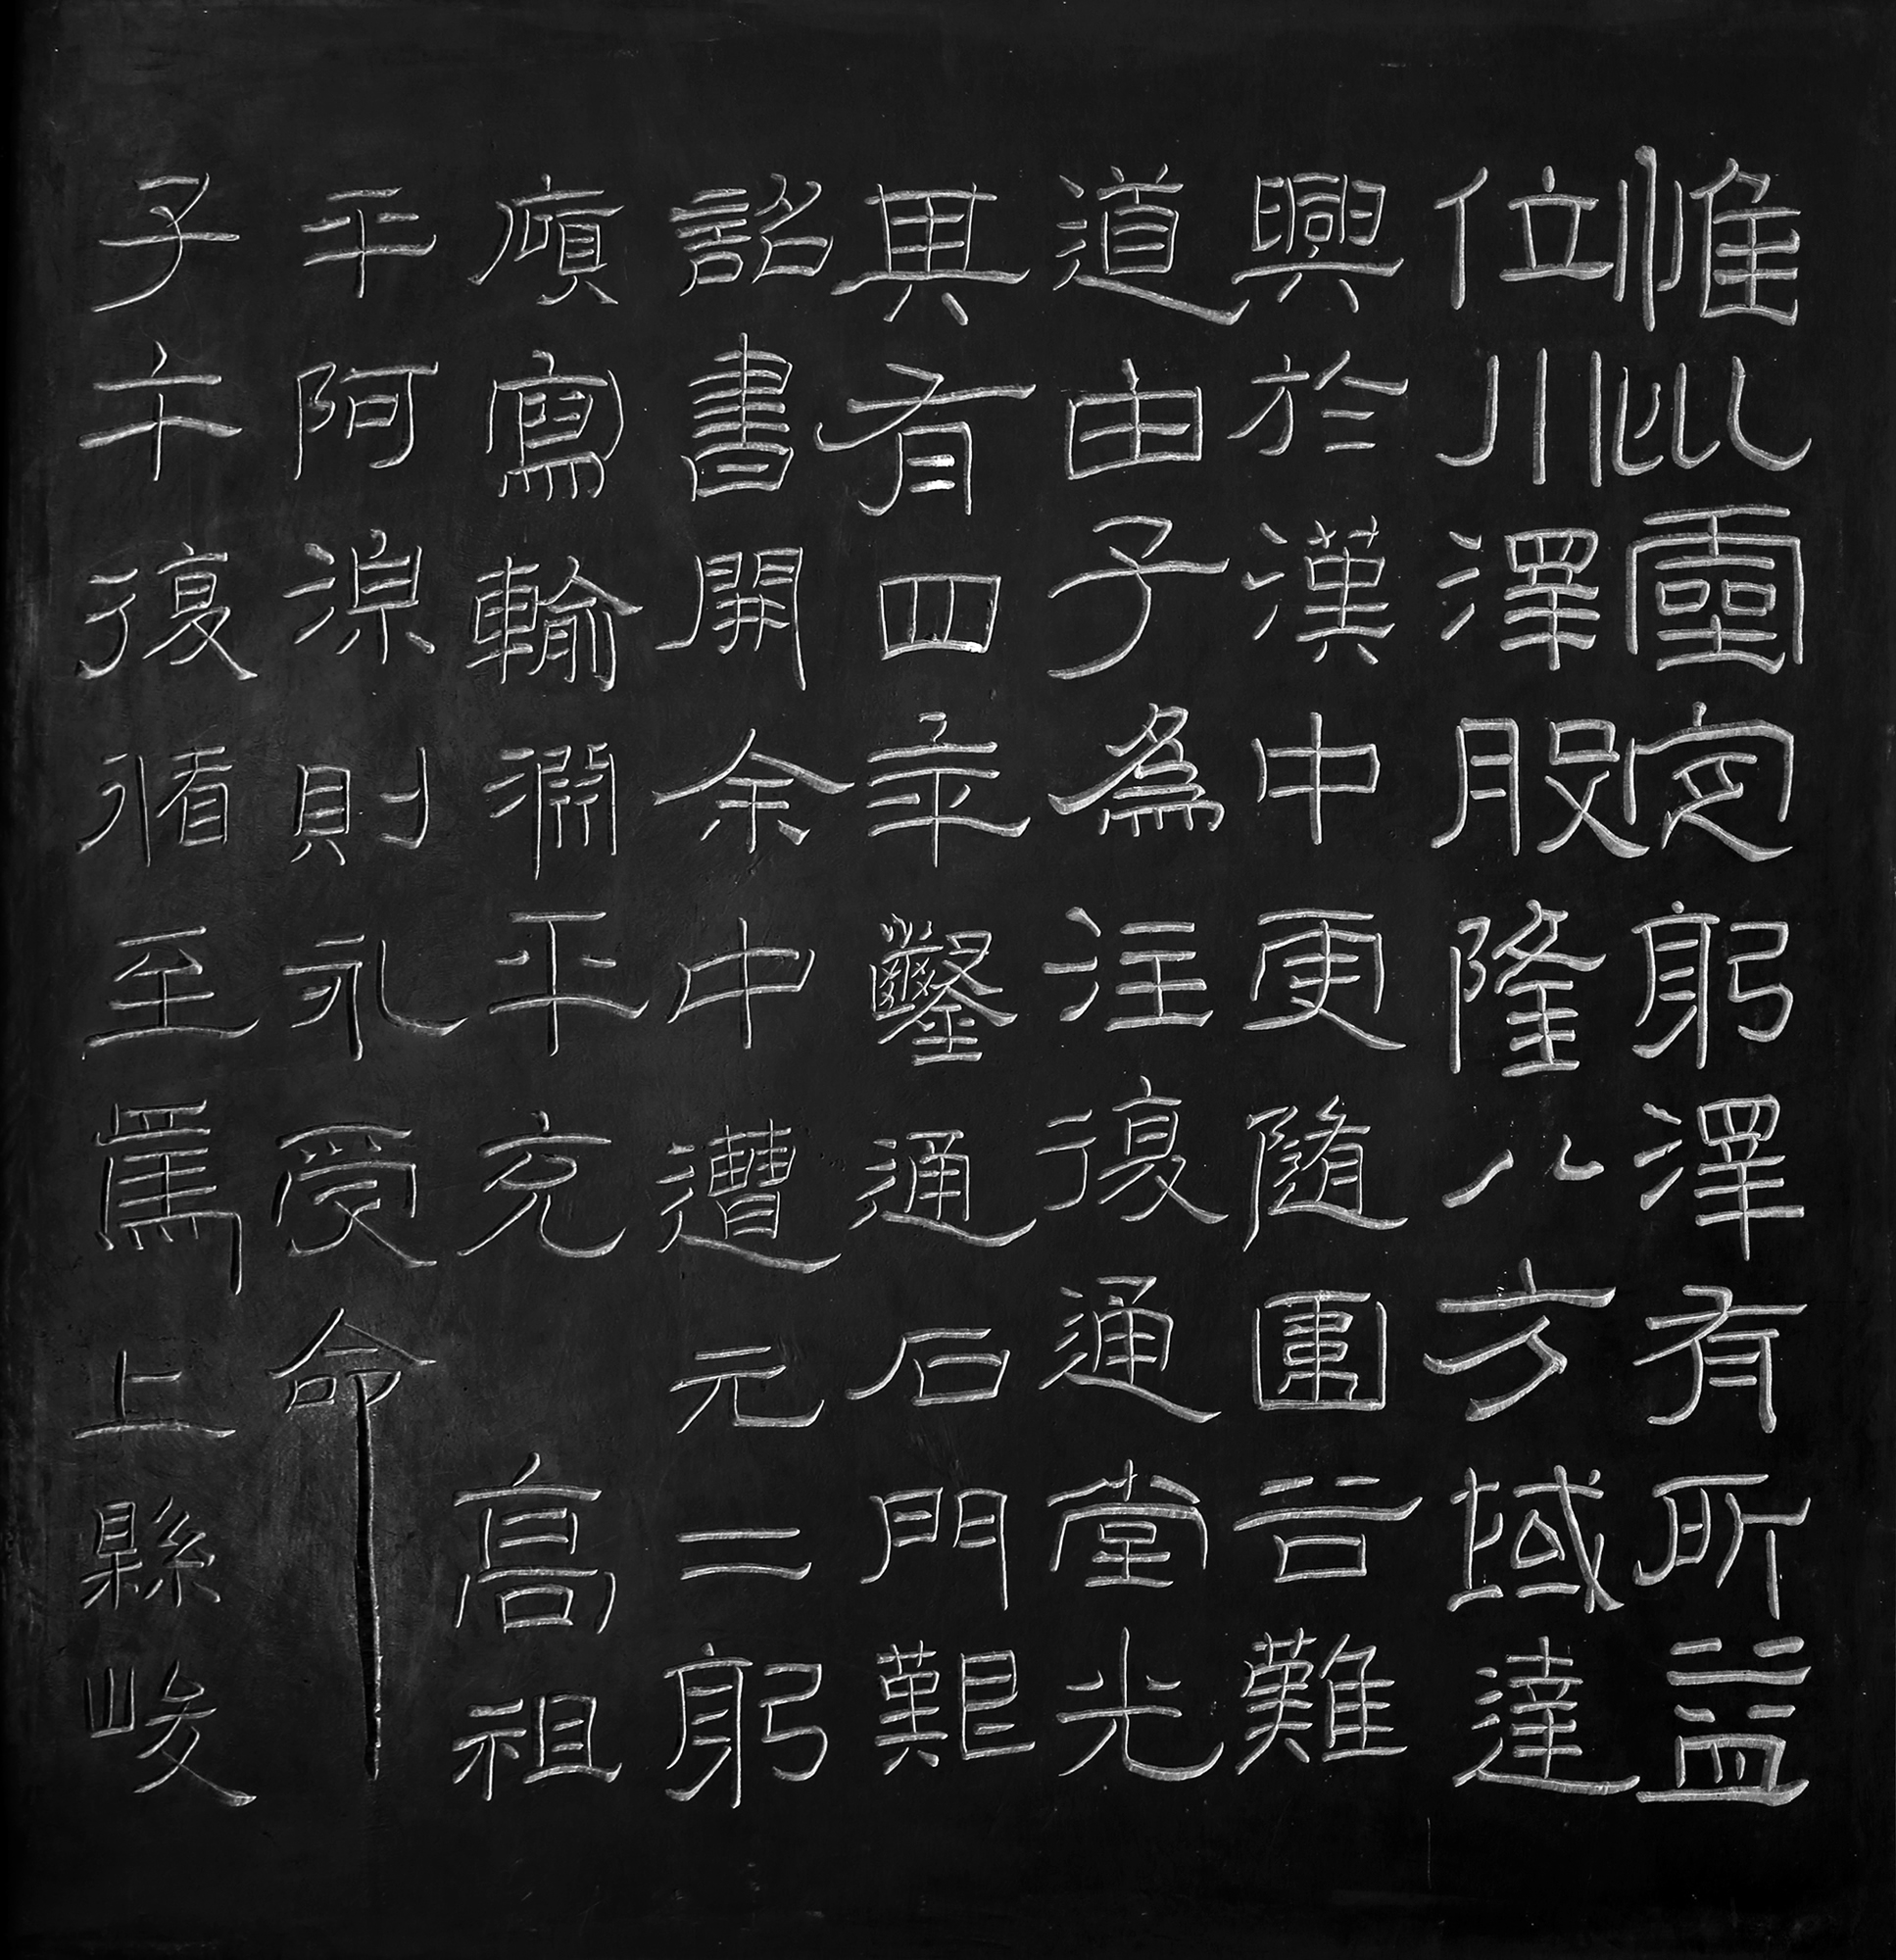 惟巛靈定躬澤有所益
位川澤股隆八方域達
興於漢中更隨圍谷難
道由子為注復通堂光
其有四年鑿通石門艱
詔書開余中遭元二躬
廎寫輸淵平充高祖
平阿湶則永受命
子午復循至上縣峻